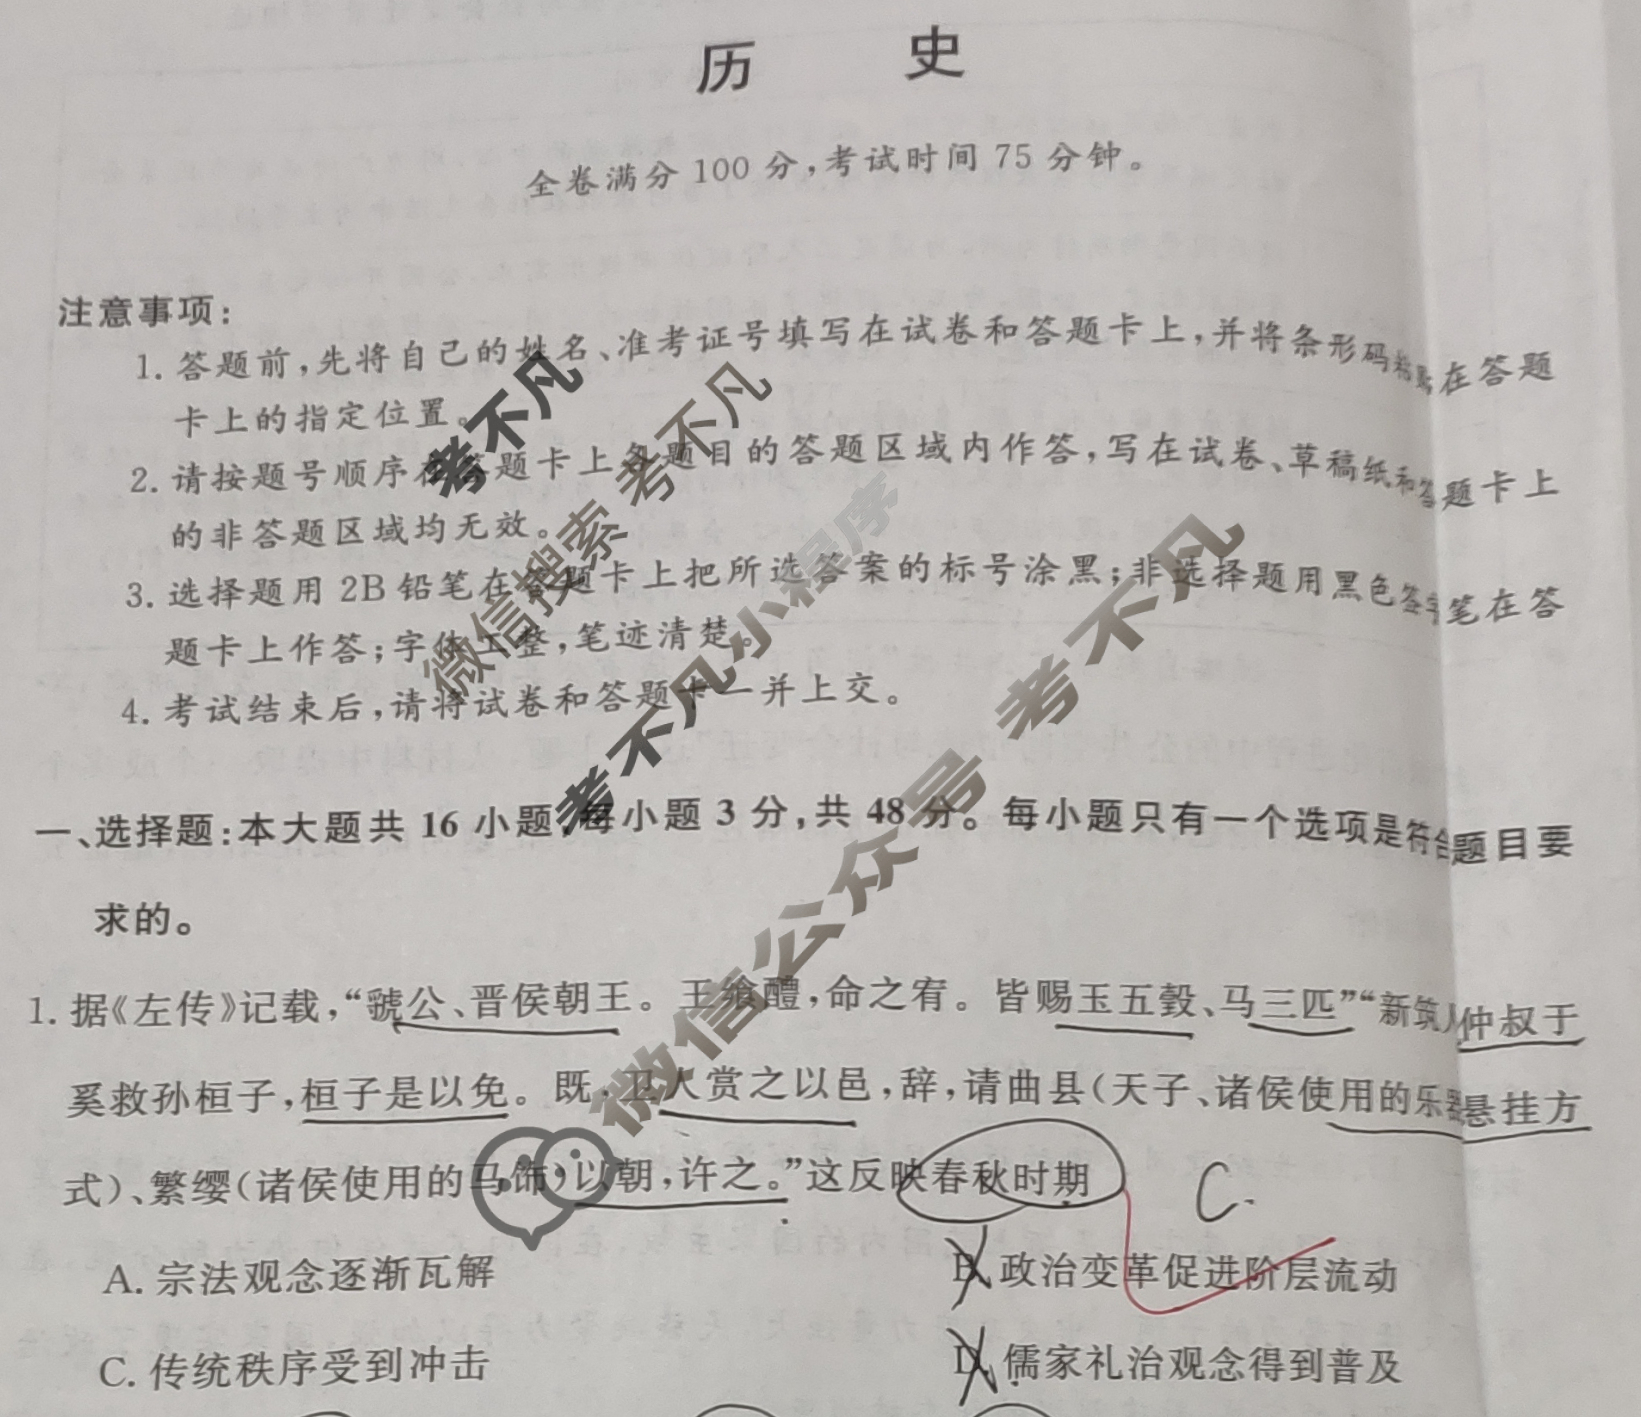 历 史
全卷满分 100 分,考试时间 75 分钟。
注意事项:
1. 答题前,先将自己的姓名、准考证号填写在试卷和答题卡上,并将条形码粘贴在答题
卡上的指定位置。
2. 请按题号顺序在答题卡上各题目的答题区域内作答,写在试卷、草稿纸和答题卡上
的非答题区域均无效。
3. 选择题用 2B 铅笔在答题卡上把所选答案的标号涂黑;非选择题用黑色签字笔在答
题卡上作答;字体工整,笔迹清楚。
4. 考试结束后,请将试卷和答题卡一并上交。
考不凡
微信搜索 考不凡
考不凡小程序
微信公众号 考不凡
一、选择题:本大题共 16 小题,每小题 3 分,共 48 分。每小题只有一个选项是符合题目要
求的。
1. 据《左传》记载,“虢公、晋侯朝王。王飨醴,命之宥。皆赐玉五瑴、马三匹”“新筑人仲叔于
奚救孙桓子,桓子是以免。既,卫人赏之以邑,辞,请曲县(天子、诸侯使用的乐器悬挂方
式)、繁缨(诸侯使用的马饰)以朝,许之。”这反映春秋时期 C.
A. 宗法观念逐渐瓦解 B. 政治变革促进阶层流动
C. 传统秩序受到冲击 D. 儒家礼治观念得到普及